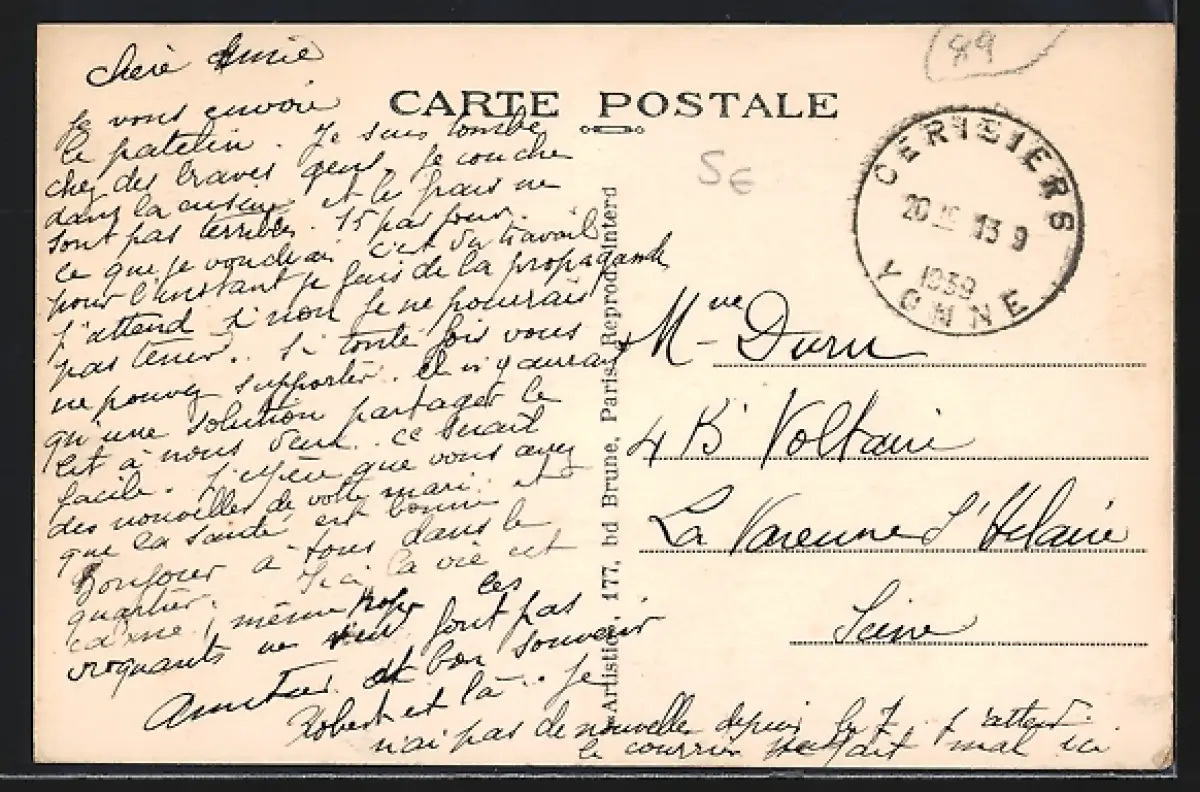 Chère Amie
Je vous envoie
le patelin. Je suis tombé
chez des braves gens. Je couche
dans la cuisine et les frais ne
sont pas terribles. 15 par jour.
ce que je voudrai c'est du travail
pour l'instant je fais de la propagande
j'attend si non je ne pourrais
pas tenir. Si toute fois vous
ne pouvez supporter. il n'y aurais
qu'une solution partager le
lit à nous deux. ce serait
facile. J'espère que vous avez
des nouvelles de votre mari. et
que la santé est bonne
Bonjour à tous dans le
quartier. Ici la vie est
calme, même trop les
croquants ne font pas
Amitié et bon souvenir
Robert et là. Je
n'ai pas de nouvelle depuis le 7 j'attend.
le courrier se fait mal ici
CARTE POSTALE
89
5€
CERISIERS
20 13 9
1939
YONNE
"Artistic" 177, bd Brune, Paris. Reprod. interd
Mme Duru
4 Bd Voltaire
La Varenne St Hilaire
Seine